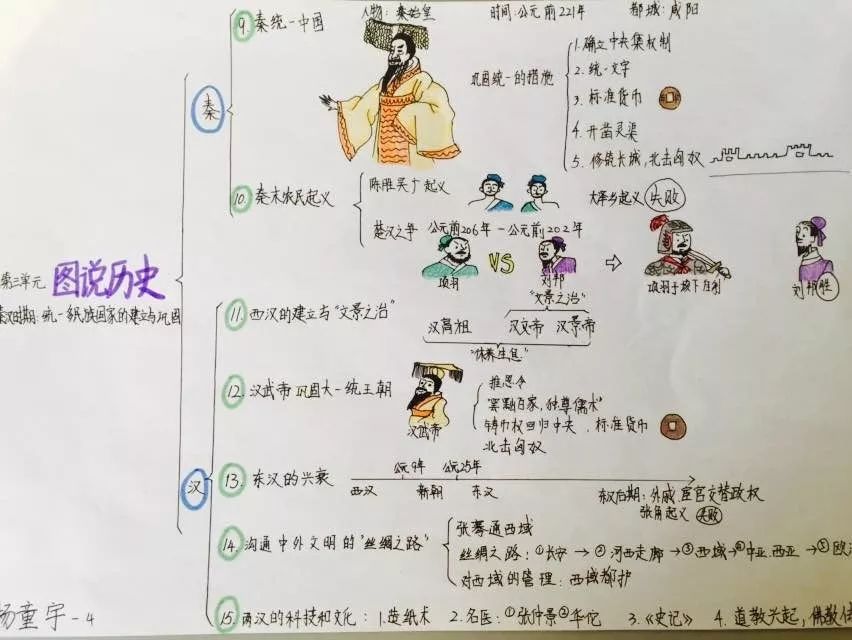 9. 秦统一中国
人物:秦始皇
时间:公元前221年
都城:咸阳
巩固统一的措施
1.确立中央集权制
2.统一文字
3.标准货币
4.开凿灵渠
5.修筑长城,北击匈奴
秦
10. 秦末农民起义
陈胜吴广起义
大泽乡起义 失败
楚汉之争 公元前206年-公元前202年
项羽
VS
刘邦
项羽于垓下
刘邦胜
第三单元 图说历史
秦汉时期:统一多民族国家的建立与巩固
11. 西汉的建立与"文景之治"
"文景之治"
汉高祖 汉文帝 汉景帝
"休养生息"
12. 汉武帝巩固大一统王朝
汉武帝
推恩令
"罢黜百家,独尊儒术"
铸币权回归中央,标准货币
北击匈奴
汉
13. 东汉的兴衰
公元9年 公元25年
西汉 新朝 东汉
东汉后期:外戚宦官交替政权
张角起义 失败
14. 沟通中外文明的"丝绸之路"
张骞通西域
丝绸之路:①长安→②河西走廊→③西域→④中亚.西亚→⑤欧
对西域的管理:西域都护
15. 两汉的科技和文化:1.造纸术 2.名医:①张仲景②华佗 3.《史记》 4.道教兴起,佛教
杨童宇-4